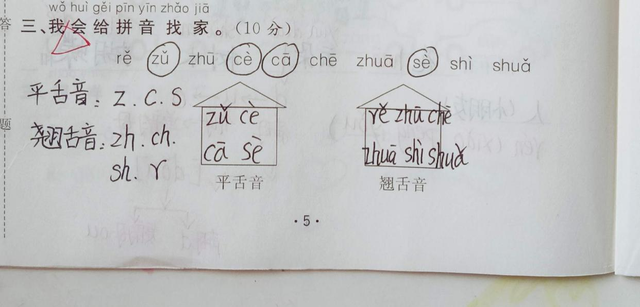 wǒ huì gěi pīn yīn zhǎo jiā
三、我会给拼音找家。(10分)
答
rě zǔ zhū cè cā chē zhuā sè shì shuǎ
平舌音：z.c.s
翘舌音：zh.ch.
sh.r
题
zǔ cè
cā sè
平舌音
rě zhū chē
zhuā shì shuǎ
翘舌音
·5·